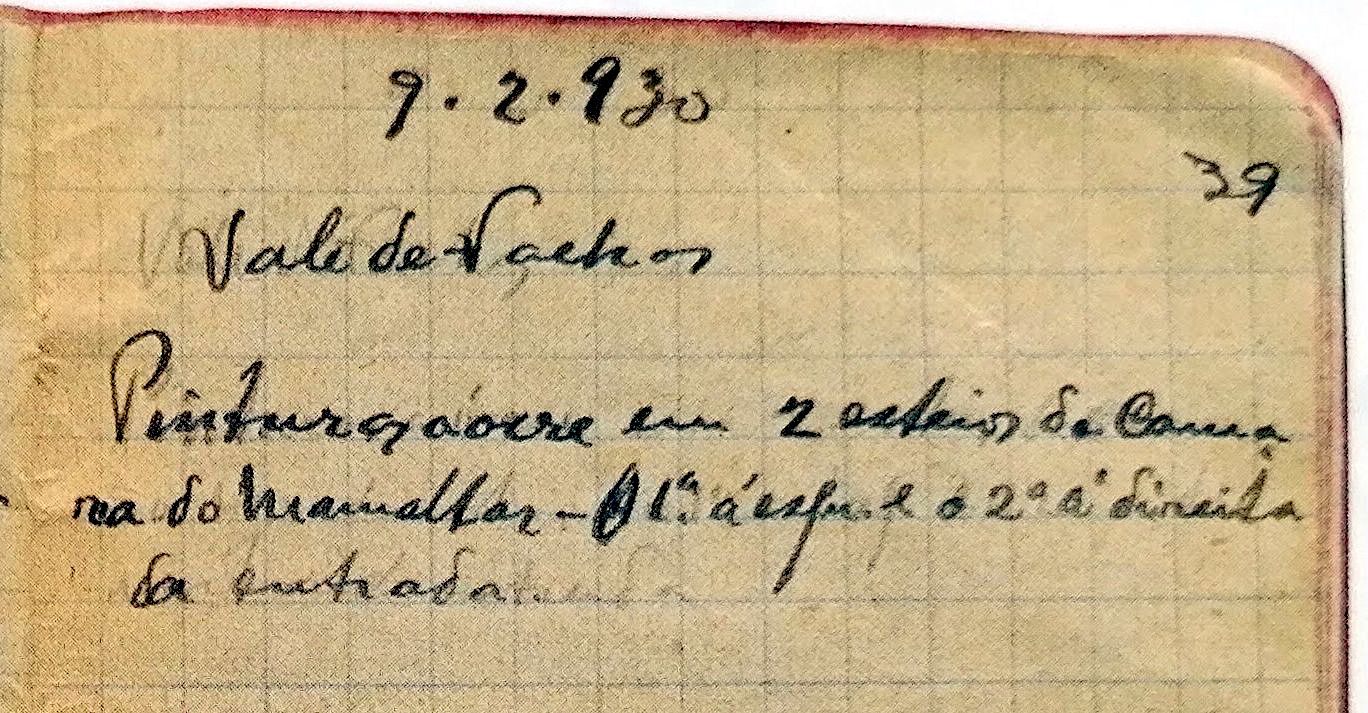 9.2.930
39
Vale de Fachas
Pinturas a ocre em 2 esteios da Cama
ra do Mamaltar - O 1º á esq. e o 2º á direita
da entrada